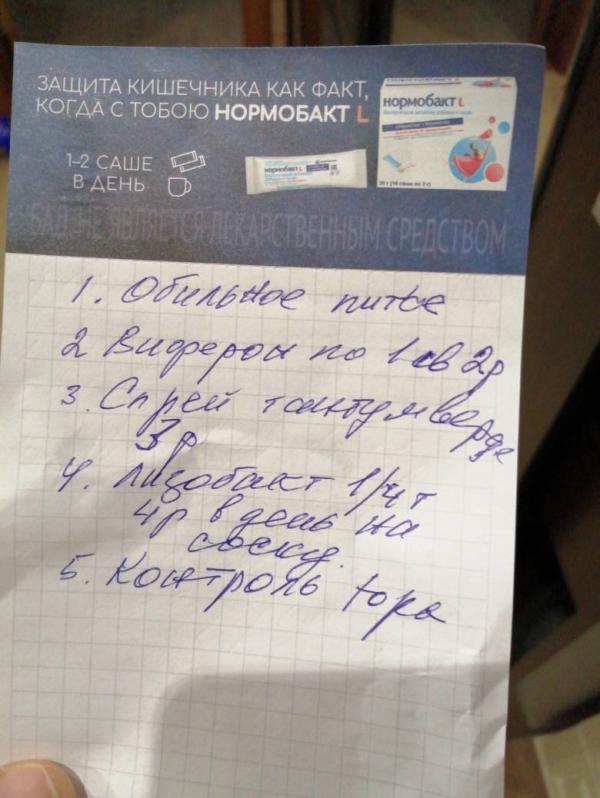 ЗАЩИТА КИШЕЧНИКА КАК ФАКТ,
КОГДА С ТОБОЮ НОРМОБАКТ L
1-2 САШЕ
В ДЕНЬ
нормобакт L
НОРМОБАКТ L
20 г (10 саше по 2 г)
БАД. НЕ ЯВЛЯЕТСЯ ЛЕКАРСТВЕННЫМ СРЕДСТВОМ
1. Обильное питье
2 Виферон по 1 св 2р
3. Спрей тантум верде
3р
4. Лизобакт 1/4 т
4р в день на
соску.
5. Контроль